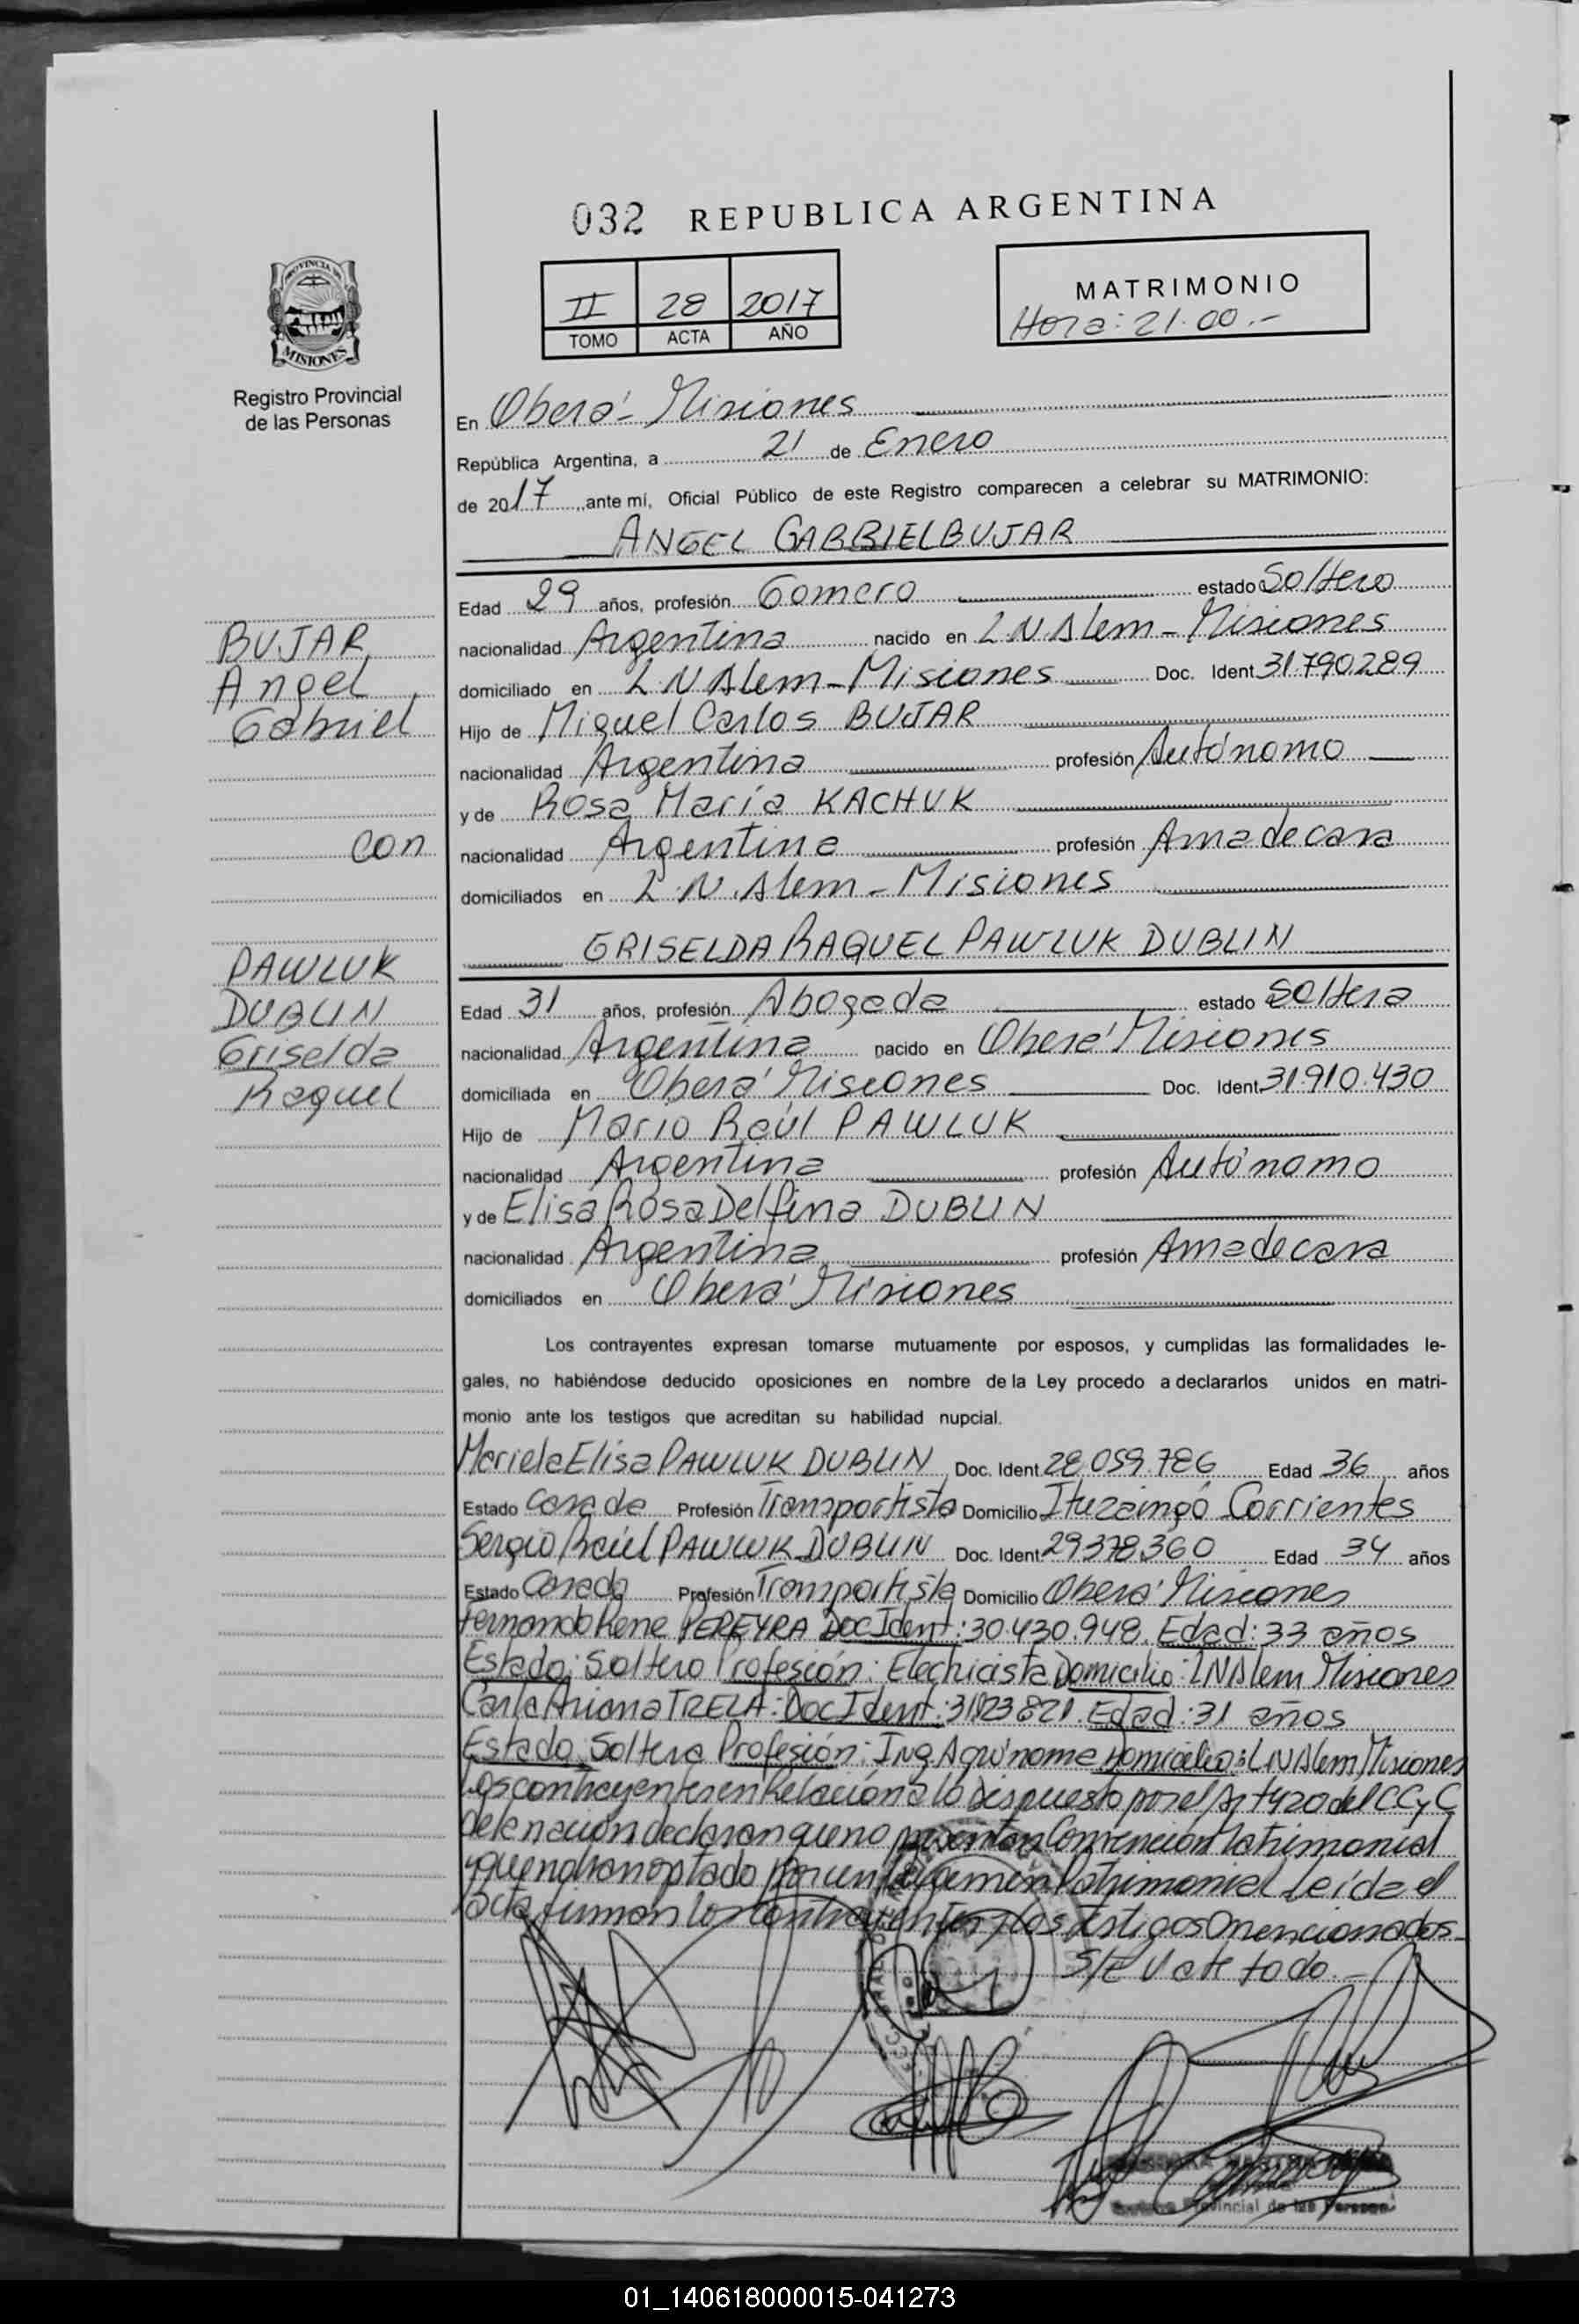 032 REPUBLICA ARGENTINA
PROVINCIA DE
MISIONES
Registro Provincial
de las Personas
II 28 2017
TOMO ACTA AÑO
MATRIMONIO
Hora: 21.00.-
En Oberá - Misiones
República Argentina, a 21 de Enero
de 2017 ante mí, Oficial Público de este Registro comparecen a celebrar su MATRIMONIO:
ANGEL GABRIEL BUJAR
Edad 29 años, profesión Gomero estado Soltero
nacionalidad Argentina nacido en L N Alem - Misiones
domiciliado en L N Alem - Misiones Doc. Ident 31.790.289
Hijo de Miguel Carlos BUJAR
nacionalidad Argentina profesión Autónomo
y de Rosa María KACHUK
nacionalidad Argentina profesión Ama de casa
domiciliados en L.N. Alem - Misiones
BUJAR
Angel
Gabriel
con
PAWLUK
DUBLIN
Griselda
Raquel
GRISELDA RAQUEL PAWLUK DUBLIN
Edad 31 años, profesión Abogada estado Soltera
nacionalidad Argentina nacido en Oberá Misiones
domiciliada en Oberá Misiones Doc. Ident 31.910.430
Hijo de Mario Raúl PAWLUK
nacionalidad Argentina profesión Autónomo
y de Elisa Rosa Delfina DUBLIN
nacionalidad Argentina profesión Ama de casa
domiciliados en Oberá Misiones
Los contrayentes expresan tomarse mutuamente por esposos, y cumplidas las formalidades le-
gales, no habiéndose deducido oposiciones en nombre de la Ley procedo a declararlos unidos en matri-
monio ante los testigos que acreditan su habilidad nupcial.
Mariela Elisa PAWLUK DUBLIN Doc. Ident 28.059.786 Edad 36 años
Estado Casada Profesión Transportista Domicilio Ituzaingó Corrientes
Sergio Raúl PAWLUK DUBLIN Doc. Ident 29.378.360 Edad 34 años
Estado Casado Profesión Transportista Domicilio Oberá Misiones
Fernando Rene PEREYRA Doc Ident: 30.430.948. Edad: 33 años
Estado: Soltero Profesión: Electricista Domicilio: L N Alem Misiones
Carla Ariana TRELA: Doc Ident: Edad: 31 años
Estado: Soltera Profesión: Ing. Agrónoma Domicilio: L N Alem Misiones
Los contrayentes en Relación a lo Dispuesto por el Art 420 del CCyC
de la nación declaran que no presentan Convención Matrimonial
y que no han optado por un Régimen Patrimonial. Leída el
acta firman los contrayentes y los testigos mencionados.
S/E Vale todo.-
Provincial de las Personas
01_140618000015-041273